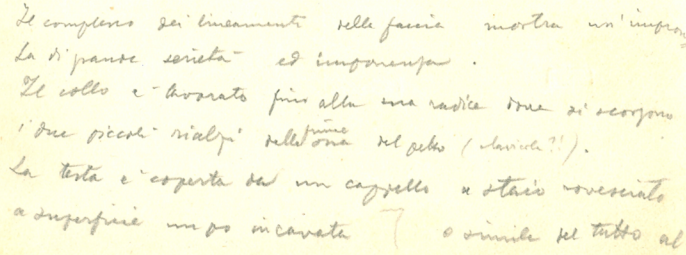 Il complesso dei lineamenti della faccia mostra un'impron
ta di grande serietà ed imponenza.
Il collo è lavorato fino alla sua radice dove si scorgono
i due piccoli rialzi delle prime ossa del petto (clavicole?!).
La testa è coperta da un cappello a staio rovesciato
a superficie un po incavata o simile del tutto al